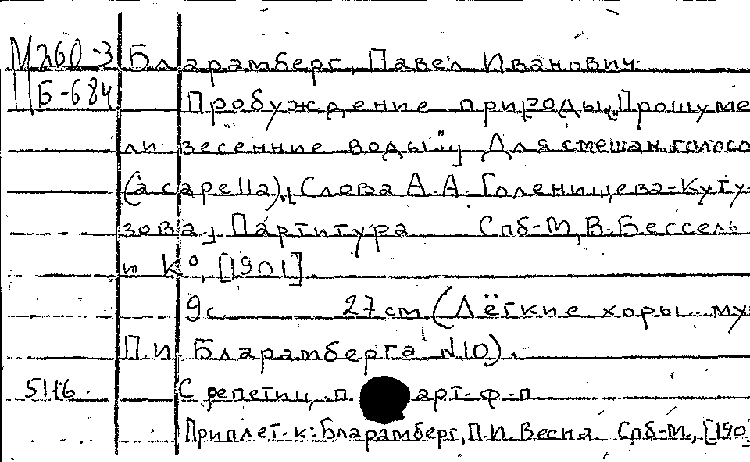 М260-3 Бларамберг, Павел Иванович
Б-684 Пробуждение природы "Прошуме
ли весенние воды" Для смешан. голосо
(a capella). Слова А.А. Голенищева-Куту
зова. Партитура Спб-М, В. Бессель
и К°, [1901]
9с 27см (Лёгкие хоры муз
П.И. Бларамберга N10).
5116 С репетиц. п арт. ф-п
Приплет. к: Бларамберг, П.И. Весна. Спб-М., [190